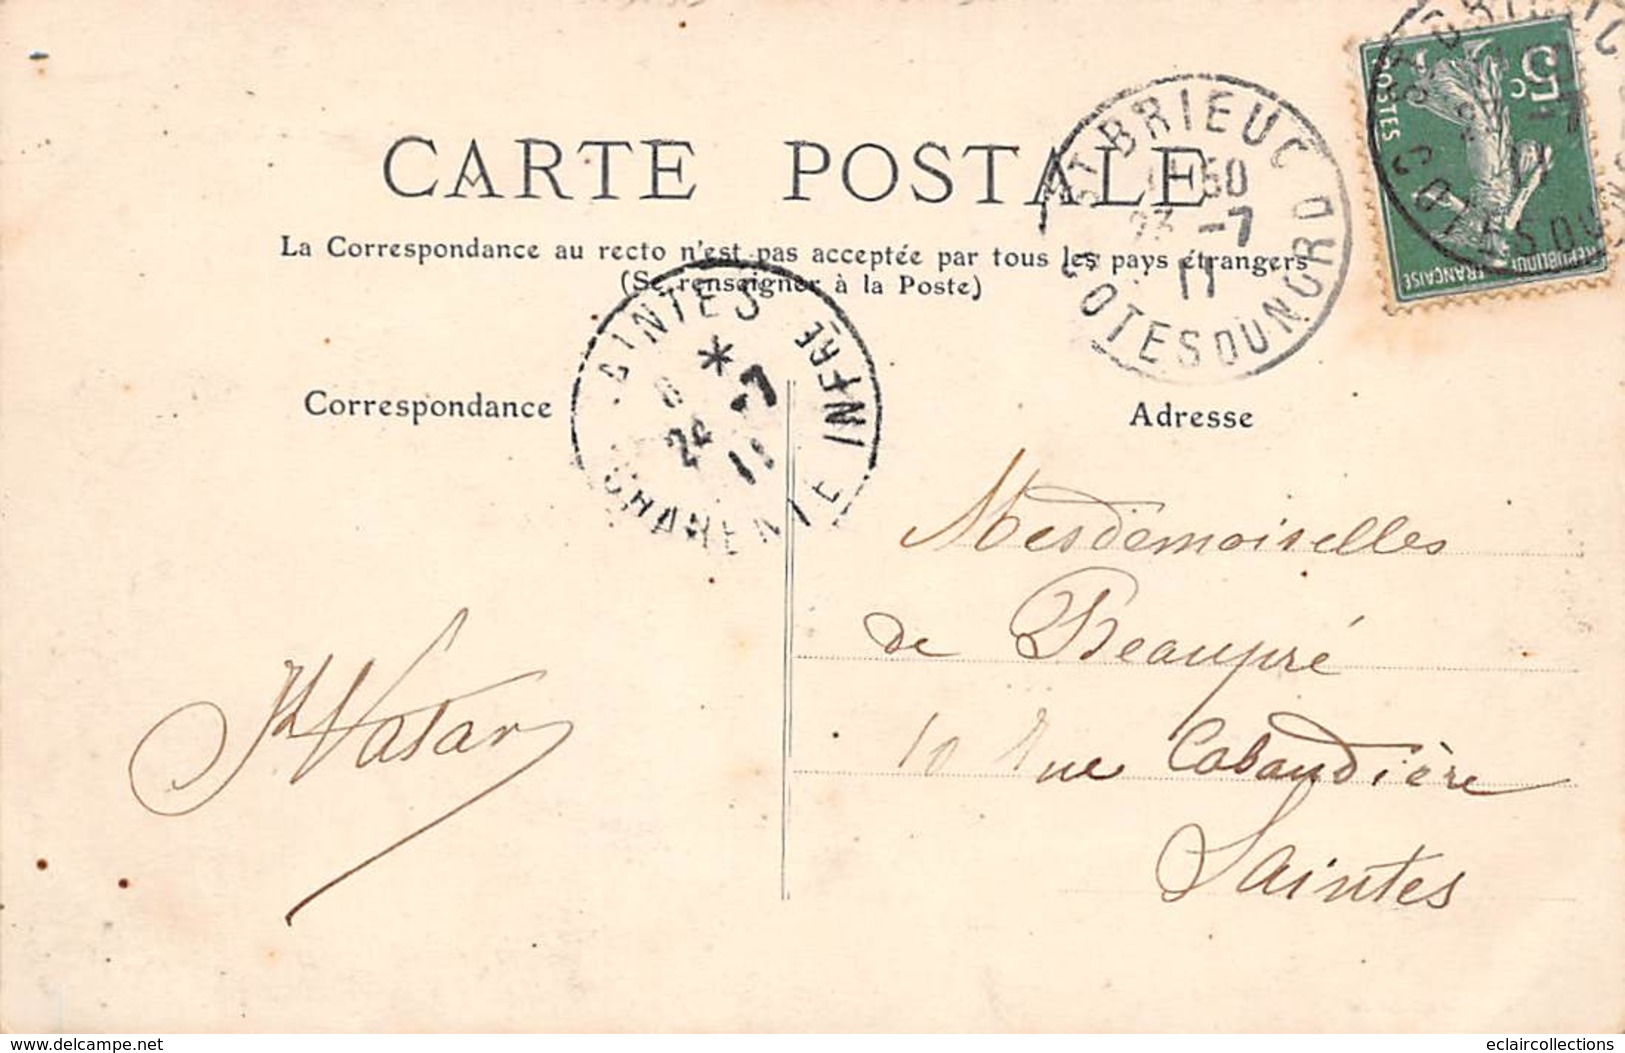 CARTE POSTALE
La Correspondance au recto n'est pas acceptée par tous les pays étrangers
(Se renseigner à la Poste)
ST BRIEUC
50
23 -7
11
COTES DU NORD
5c
POSTES
REPUBLIQUE FRANÇAISE
*
24 -7
11
CHARENTE INFRE
Correspondance
Adresse
Mesdemoiselles
de Beaupré
10 Rue Cabaudière
Saintes
delcampe.net
eclaircollections